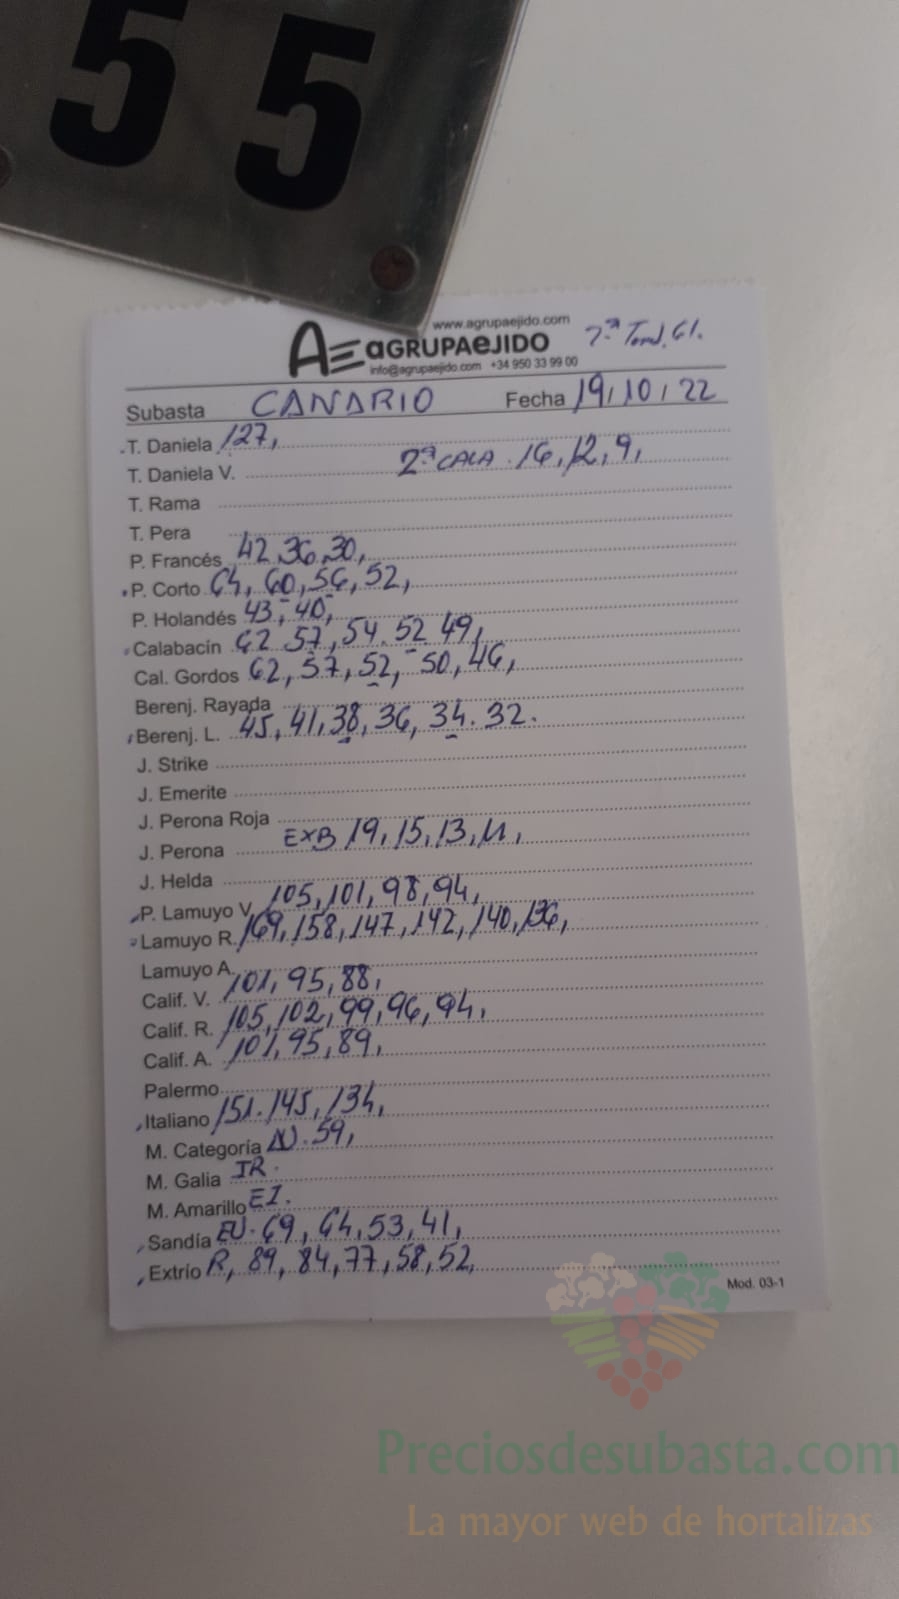 55
www.agrupaejido.com
AGRUPAEJIDO
info@agrupaejido.com +34 950 33 99 00
Subasta CANARIO Fecha 19/10/22
T. Daniela 127,
T. Daniela V. 2ª CALA. 16, 12, 9,
T. Rama
T. Pera
P. Francés 42, 36, 30,
P. Corto 64, 60, 56, 52,
P. Holandés 43, 40,
Calabacín 62 57, 54. 52 49,
Cal. Gordos 62, 57, 52, 50, 46,
Berenj. Rayada
Berenj. L. 45, 41, 38, 36, 34. 32.
J. Strike
J. Emerite
J. Perona Roja
J. Perona EXB 19, 15, 13, 11,
J. Helda
P. Lamuyo V. 105, 101, 98, 94,
Lamuyo R. 169, 158, 147, 142, 140, 136,
Lamuyo A.
Calif. V. 101, 95, 88,
Calif. R. 105, 102, 99, 96, 94,
Calif. A. 101, 95, 89,
Palermo
Italiano 151. 145, 134,
M. Categoría N. 59,
M. Galia IR.
M. Amarillo EI.
Sandía EU. 69, 64, 53, 41,
Extrío R, 89, 84, 77, 58, 52,
Mod. 03-1
Preciosdesubasta.com
La mayor web de hortalizas